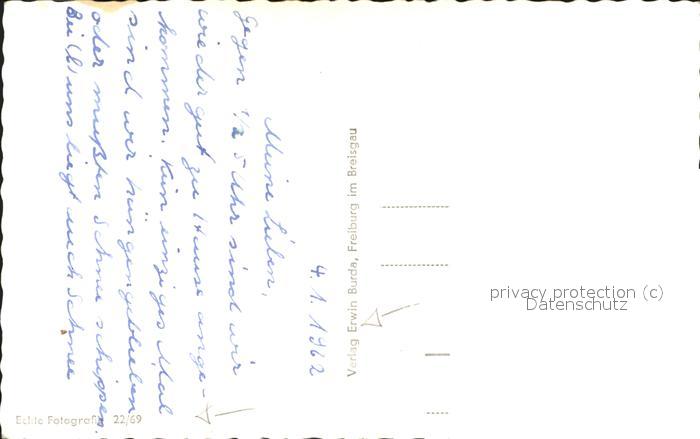 4. 1. 1962
Meine Lieben,
Gegen 1/2 5 Uhr sind wir
wieder gut zu Hause ange-
kommen. Kein einziges Mal
sind wir hängengeblieben
oder mußten Schnee schippen.
Bei uns liegt auch Schnee
Verlag Erwin Burda, Freiburg im Breisgau
Echte Fotografie 22/69
privacy protection (c)
Datenschutz